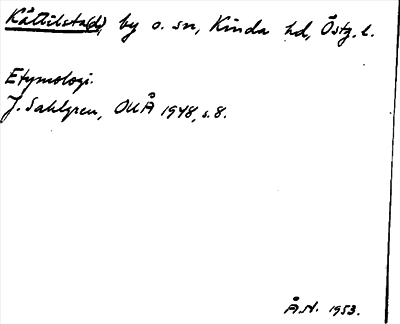 Kättilsta(d), by o. sn, Kinda hd, Östg. l.
Etymologi.
J. Sahlgren, OUÅ 1948, s. 8.
Å.N. 1953.